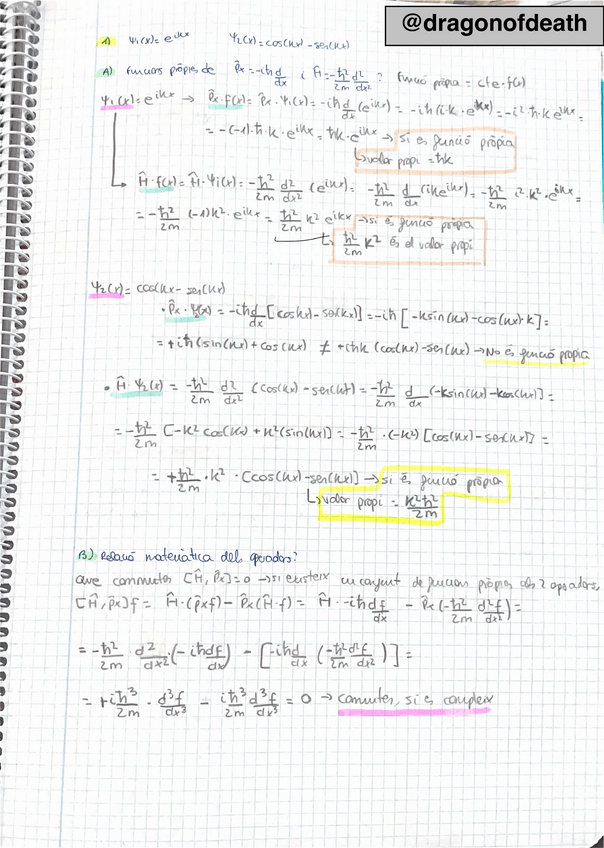 @dragonofdeath
1) Ψ₁(x) = e^{ikx}   Ψ₂(x) = cos(kx) - sen(kx)
A) Funcions pròpies de P̂x = -iħ d/dx i Ĥ = -ħ²/2m d²/dx² ? Funció pròpia = cte·f(x)
Ψ₁(x) = e^{ikx} → P̂x·f(x) = P̂x·Ψ₁(x) = -iħ d/dx (e^{ikx}) = -iħ (i·k·e^{ikx}) = -i²·ħ·k e^{ikx} =
= -(-1)·ħ·k·e^{ikx} = ħk·e^{ikx} → si és funció pròpia
↳ valor propi = ħk
Ĥ·f(x) = Ĥ·Ψ₁(x) = -ħ²/2m d²/dx² (e^{ikx}) = -ħ²/2m d/dx (ike^{ikx}) = -ħ²/2m i²·k²·e^{ikx} =
= -ħ²/2m (-1)k²·e^{ikx} = ħ²/2m k² e^{ikx} → si és funció pròpia
↳ ħ²/2m k² és el valor propi
Ψ₂(x) = cos(kx) - sen(kx)
· P̂x·Ψ₂(x) = -iħ d/dx [cos(kx) - sen(kx)] = -iħ [-ksin(kx) - cos(kx)·k] =
= +iħ (sin(kx) + cos(kx) ≠ +iħk (cos(kx) - sen(kx) → No és funció pròpia
· Ĥ·Ψ₂(x) = -ħ²/2m d²/dx² (cos(kx) - sen(kx)) = -ħ²/2m d/dx (-ksin(kx) - kcos(kx)] =
= -ħ²/2m [-k² cos(kx) + k²(sin(kx)] = -ħ²/2m ·(-k²) [cos(kx) - sen(kx)] =
= +ħ²/2m ·k² · [cos(kx) - sen(kx)] → si és funció pròpia
↳ valor propi = k²ħ²/2m
B) Relació matemàtica dels operadors?
Que commuten [Ĥ, P̂x] = 0 → si existeix un conjunt de funcions pròpies als 2 operadors,
[Ĥ, P̂x]f = Ĥ·(P̂xf) - P̂x(Ĥ·f) = Ĥ·-iħ df/dx - P̂x (-ħ²/2m d²f/dx²) =
= -ħ²/2m · d²/dx² · (-iħ df/dx) - [-iħ d/dx (-ħ²/2m d²f/dx²)] =
= + iħ³/2m · d³f/dx³ - iħ³/2m d³f/dx³ = 0 → commuten, si es compleix